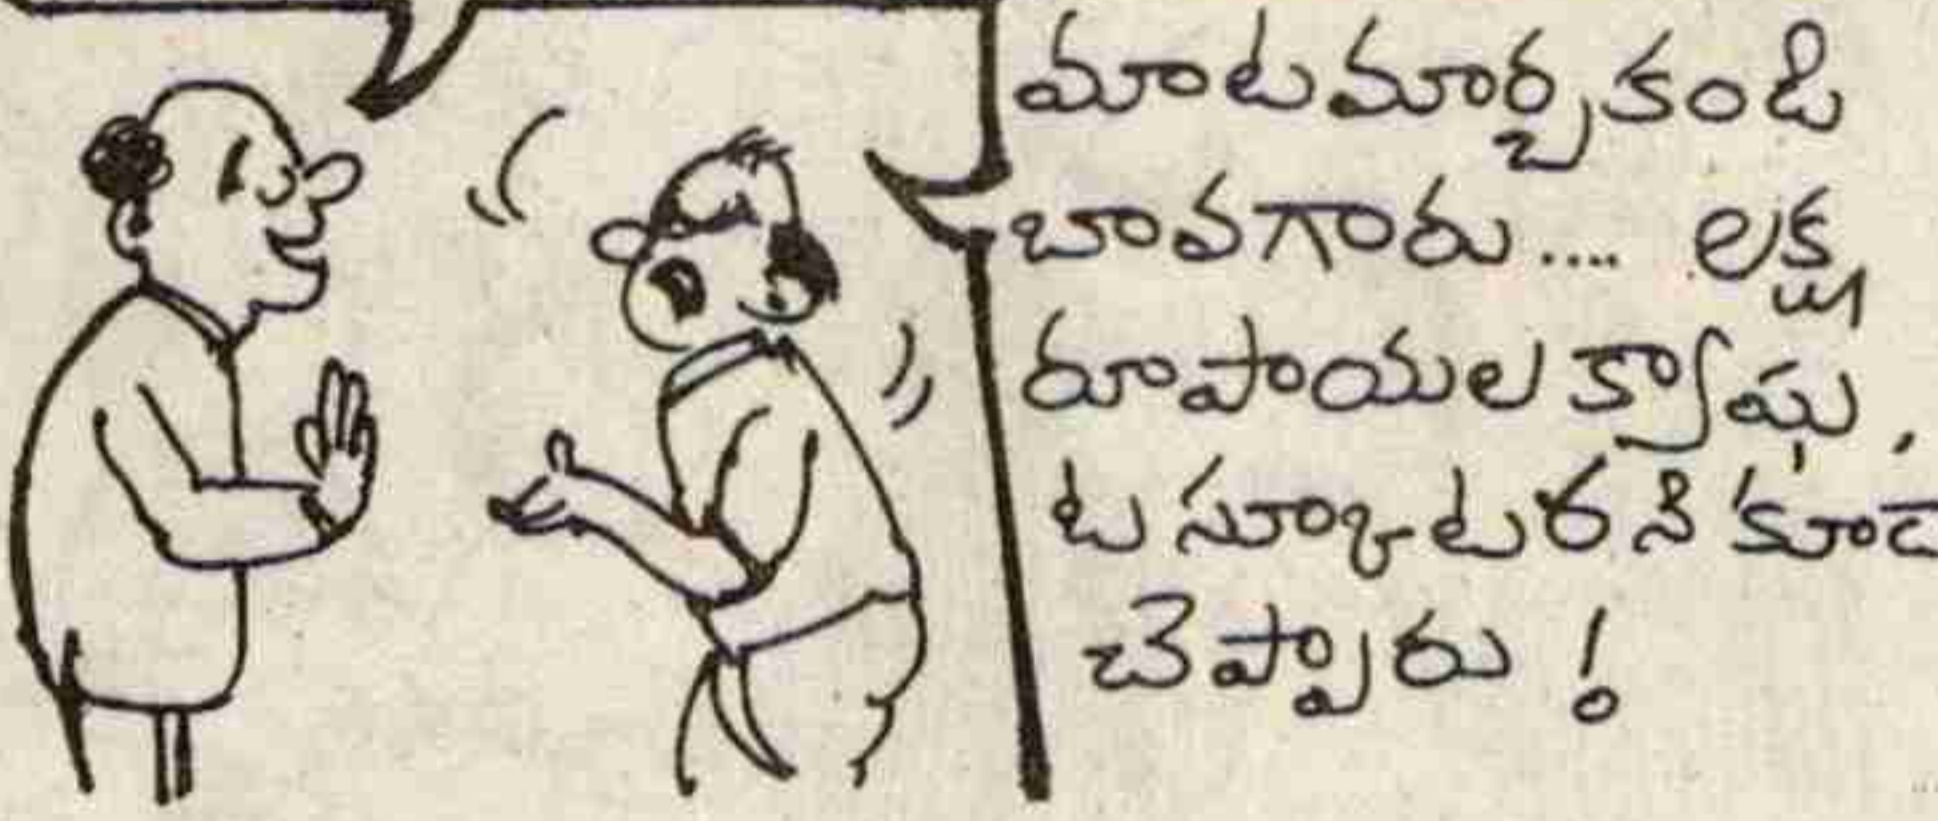 మాటమార్చకండి
బావగారు.... లక్ష
రూపాయల క్యాషు,
ఓ స్కూటరని కూడా
చెప్పారు !